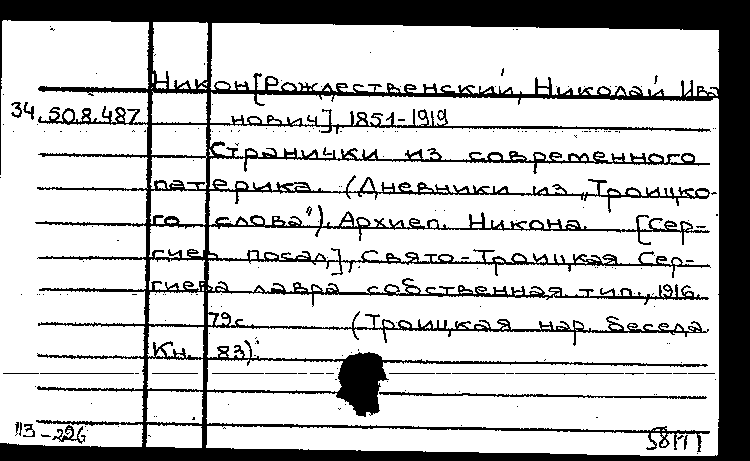 Никон[Рождественский, Николай Ива
34.50.8.487 нович], 1851-1919
Странички из современного
патерика. (Дневники из „Троицко-
го слова"). Архиеп. Никона. [Сер-
гиев посад], Свято-Троицкая Сер-
гиева лавра собственная тип., 1916.
79с. (Троицкая нар. беседа
Кн. 83).
113-226